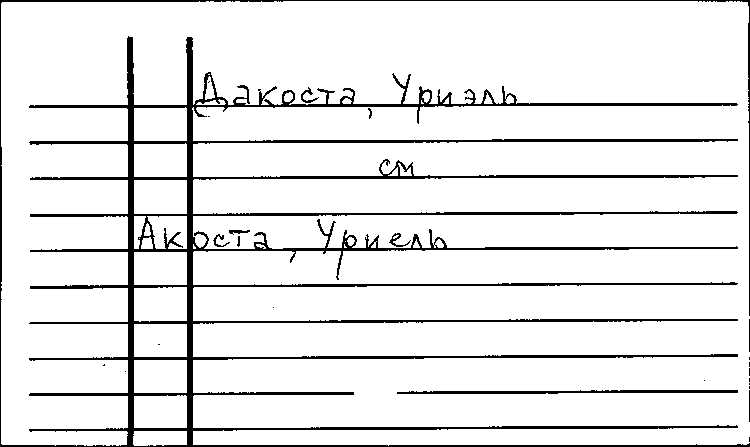 Дакоста, Уриэль
см
Акоста, Уриель